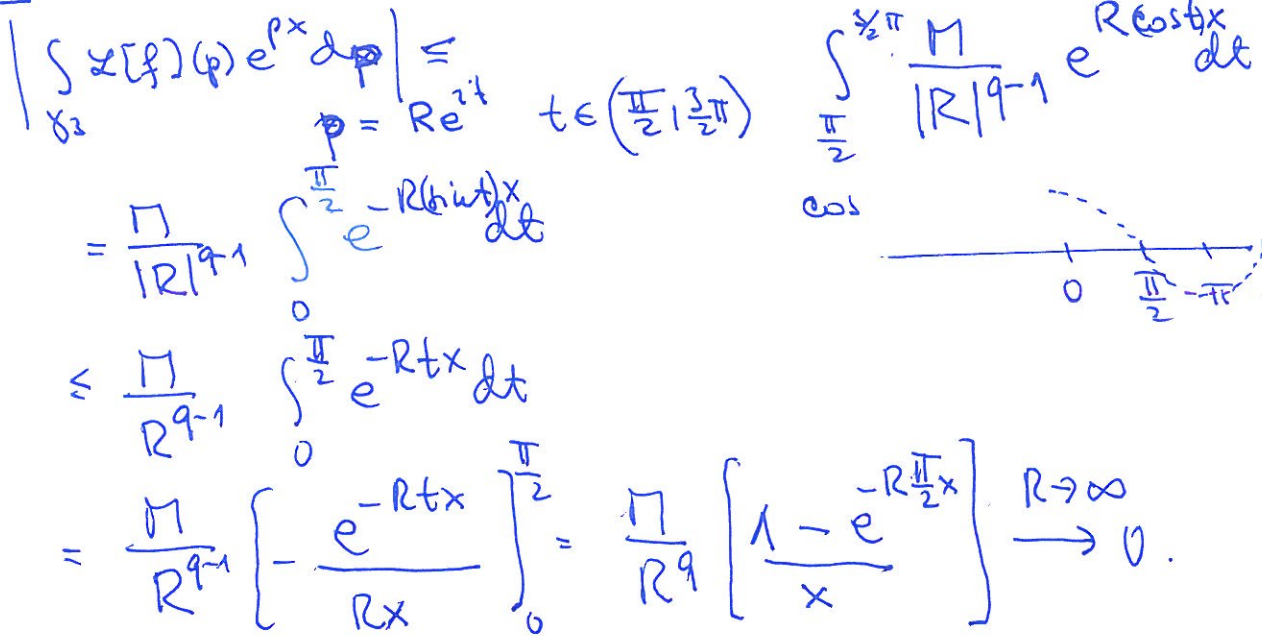 | ∫_{γ₃} ℒ[f](p) e^{px} dp | ≤ ∫_{π/2}^{3/2 π} M/|R|^{q-1} e^{R(cos t)x} dt
p = Re^{it} t ∈ (π/2, 3/2 π)
= M/|R|^{q-1} ∫_0^{π/2} e^{-R(sin t)x} dt
cos
0 π/2 π
≤ M/R^{q-1} ∫_0^{π/2} e^{-Rtx} dt
= M/R^{q-1} [ - e^{-Rtx}/Rx ]_0^{π/2} = M/R^q [ (1 - e^{-R π/2 x})/x ] R→∞ ⟶ 0.